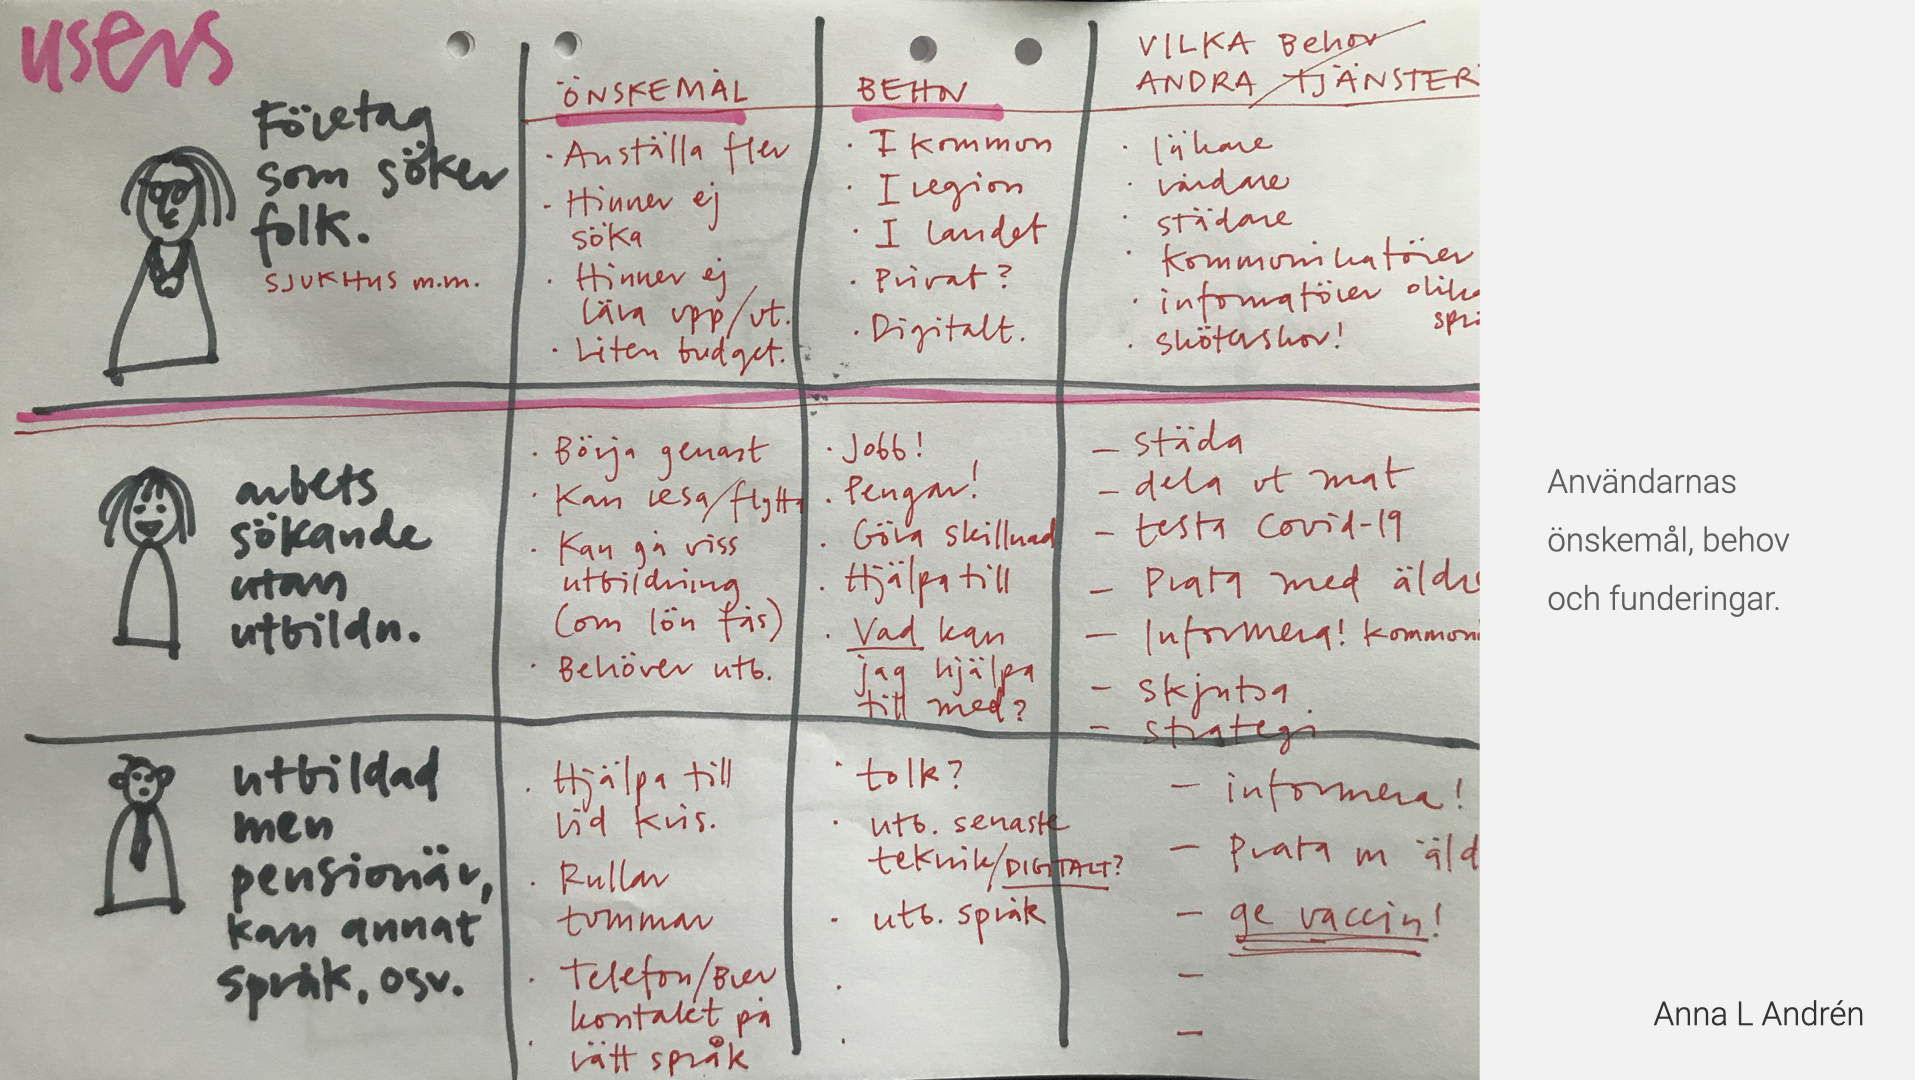 users
Företag
som söker
folk.
SJUKHUS m.m.
ÖNSKEMÅL
· Anställa fler
- Hinner ej
söka
· Hinner ej
lära upp/ut.
· Liten budget.
BEHOV
· I kommun
· I region
· I landet
· Privat?
· Digitalt.
VILKA Behov
ANDRA TJÄNSTER
· läkare
· vårdare
· städare
· kommunikatörer
· informatörer olika
språ
· sköterskor!
arbets
sökande
utan
utbildn.
· Börja genast
· Kan resa/flytta
· Kan gå viss
utbildning
(om lön fås)
· Behöver utb.
· Jobb!
· Pengar!
· Göra skillnad
· Hjälpa till
· Vad kan
jag hjälpa
till med?
— städa
— dela ut mat
— testa Covid-19
— Prata med äldre
— Informera! kommuni
— skjutsa
— strategi
utbildad
men
pensionär,
kan annat
språk, osv.
· Hjälpa till
vid kris.
· Rullar
tummar
· Telefon/Brev
kontakt på
· rätt språk
· tolk?
· utb. senaste
teknik/DIGITALT?
· utb. språk
·
·
— informera!
— Prata m äld
— ge vaccin!
—
—
Användarnas
önskemål, behov
och funderingar.
Anna L Andrén